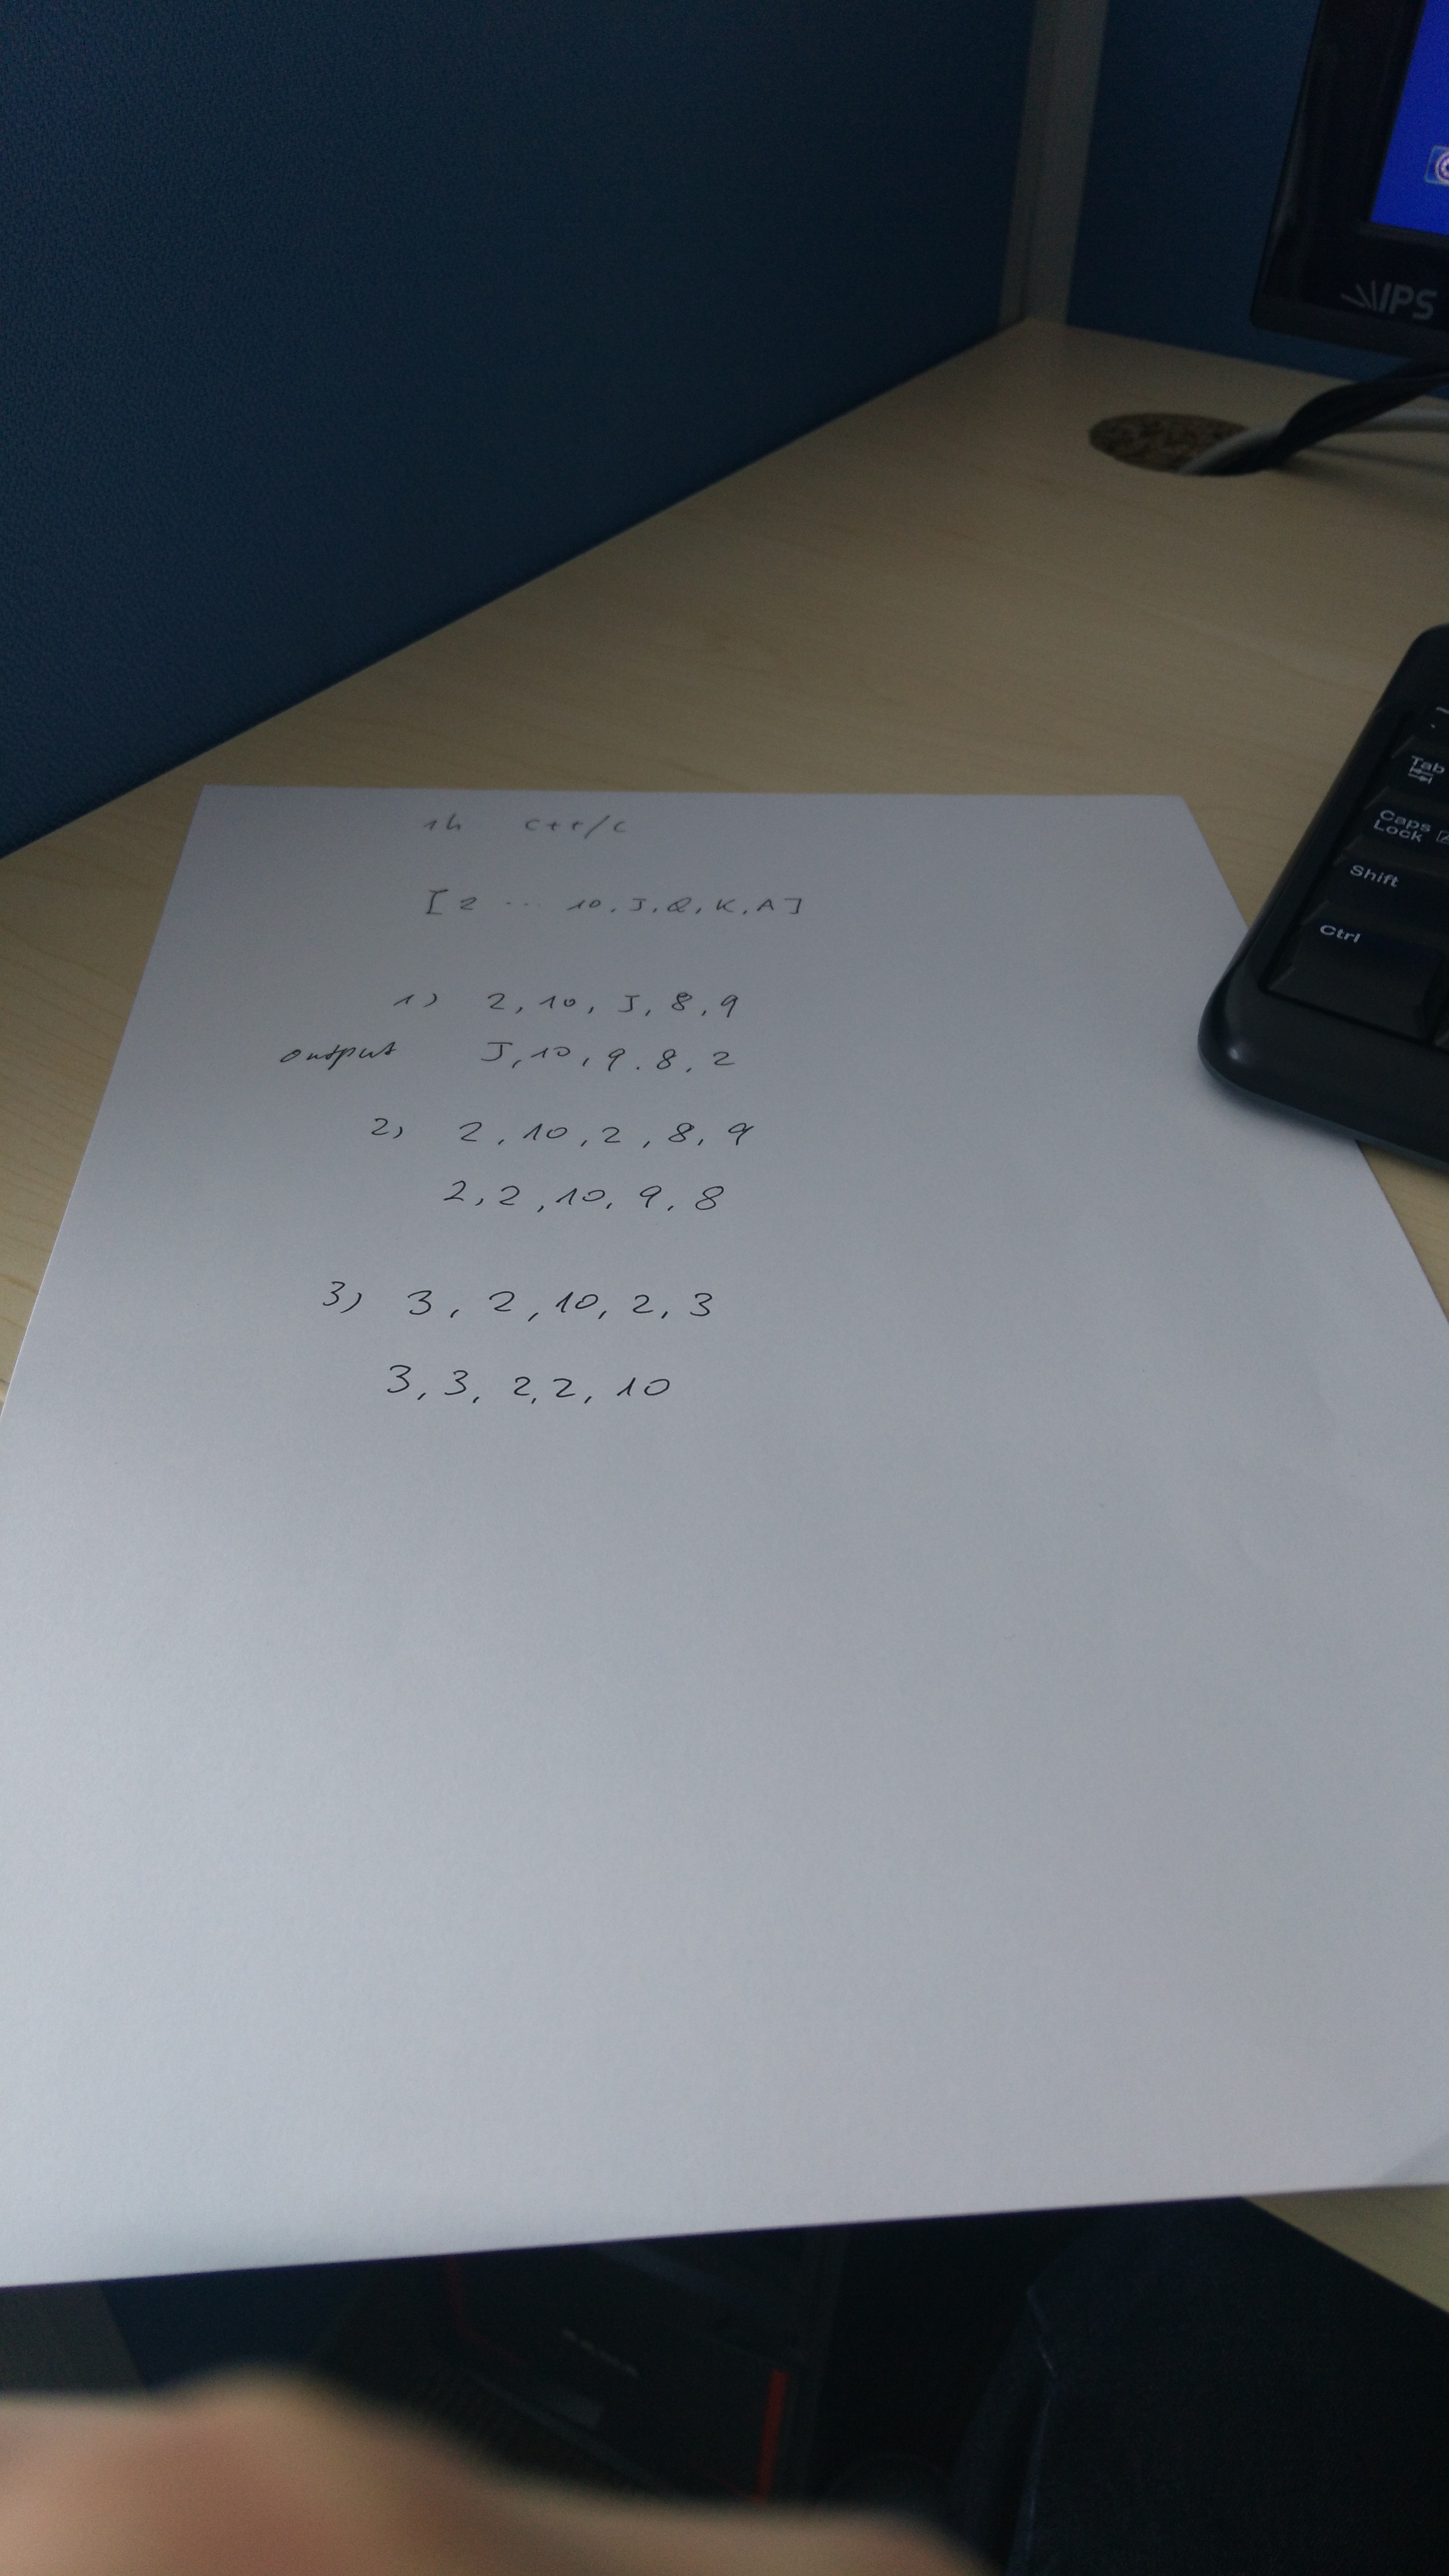 IPS
~
Tab
Caps
Lock
Shift
Ctrl
1h C++/C
[2 ... 10, J, Q, K, A]
1) 2, 10, J, 8, 9
output J, 10, 9, 8, 2
2) 2, 10, 2, 8, 9
2, 2, 10, 9, 8
3) 3, 2, 10, 2, 3
3, 3, 2, 2, 10